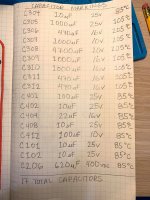 CAPACITOR MARKINGS
C304 10uF 25v 85°C
C305 1000uF 25v 105°C
C306 470uF 16v 105°C
C307 1000uF 16v 105°C
C308 4700uF 16v 105°C
C309 1000uF 16v 105°C
C310 1000uF 16v 105°C
C311 470uF 16v 105°C
C312 470uF 16v 105°C
C401 100uF 25v 85°C
C402 10uF 25v 85°C
C404 22uF 16v 85°C
C408 10uF 25v 85°C
C412 100uF 10v 85°C
C101 10uF 25v 85°C
C102 10uF 25v 85°C
C206 620uF 400v 85°C
17 TOTAL CAPACITORS